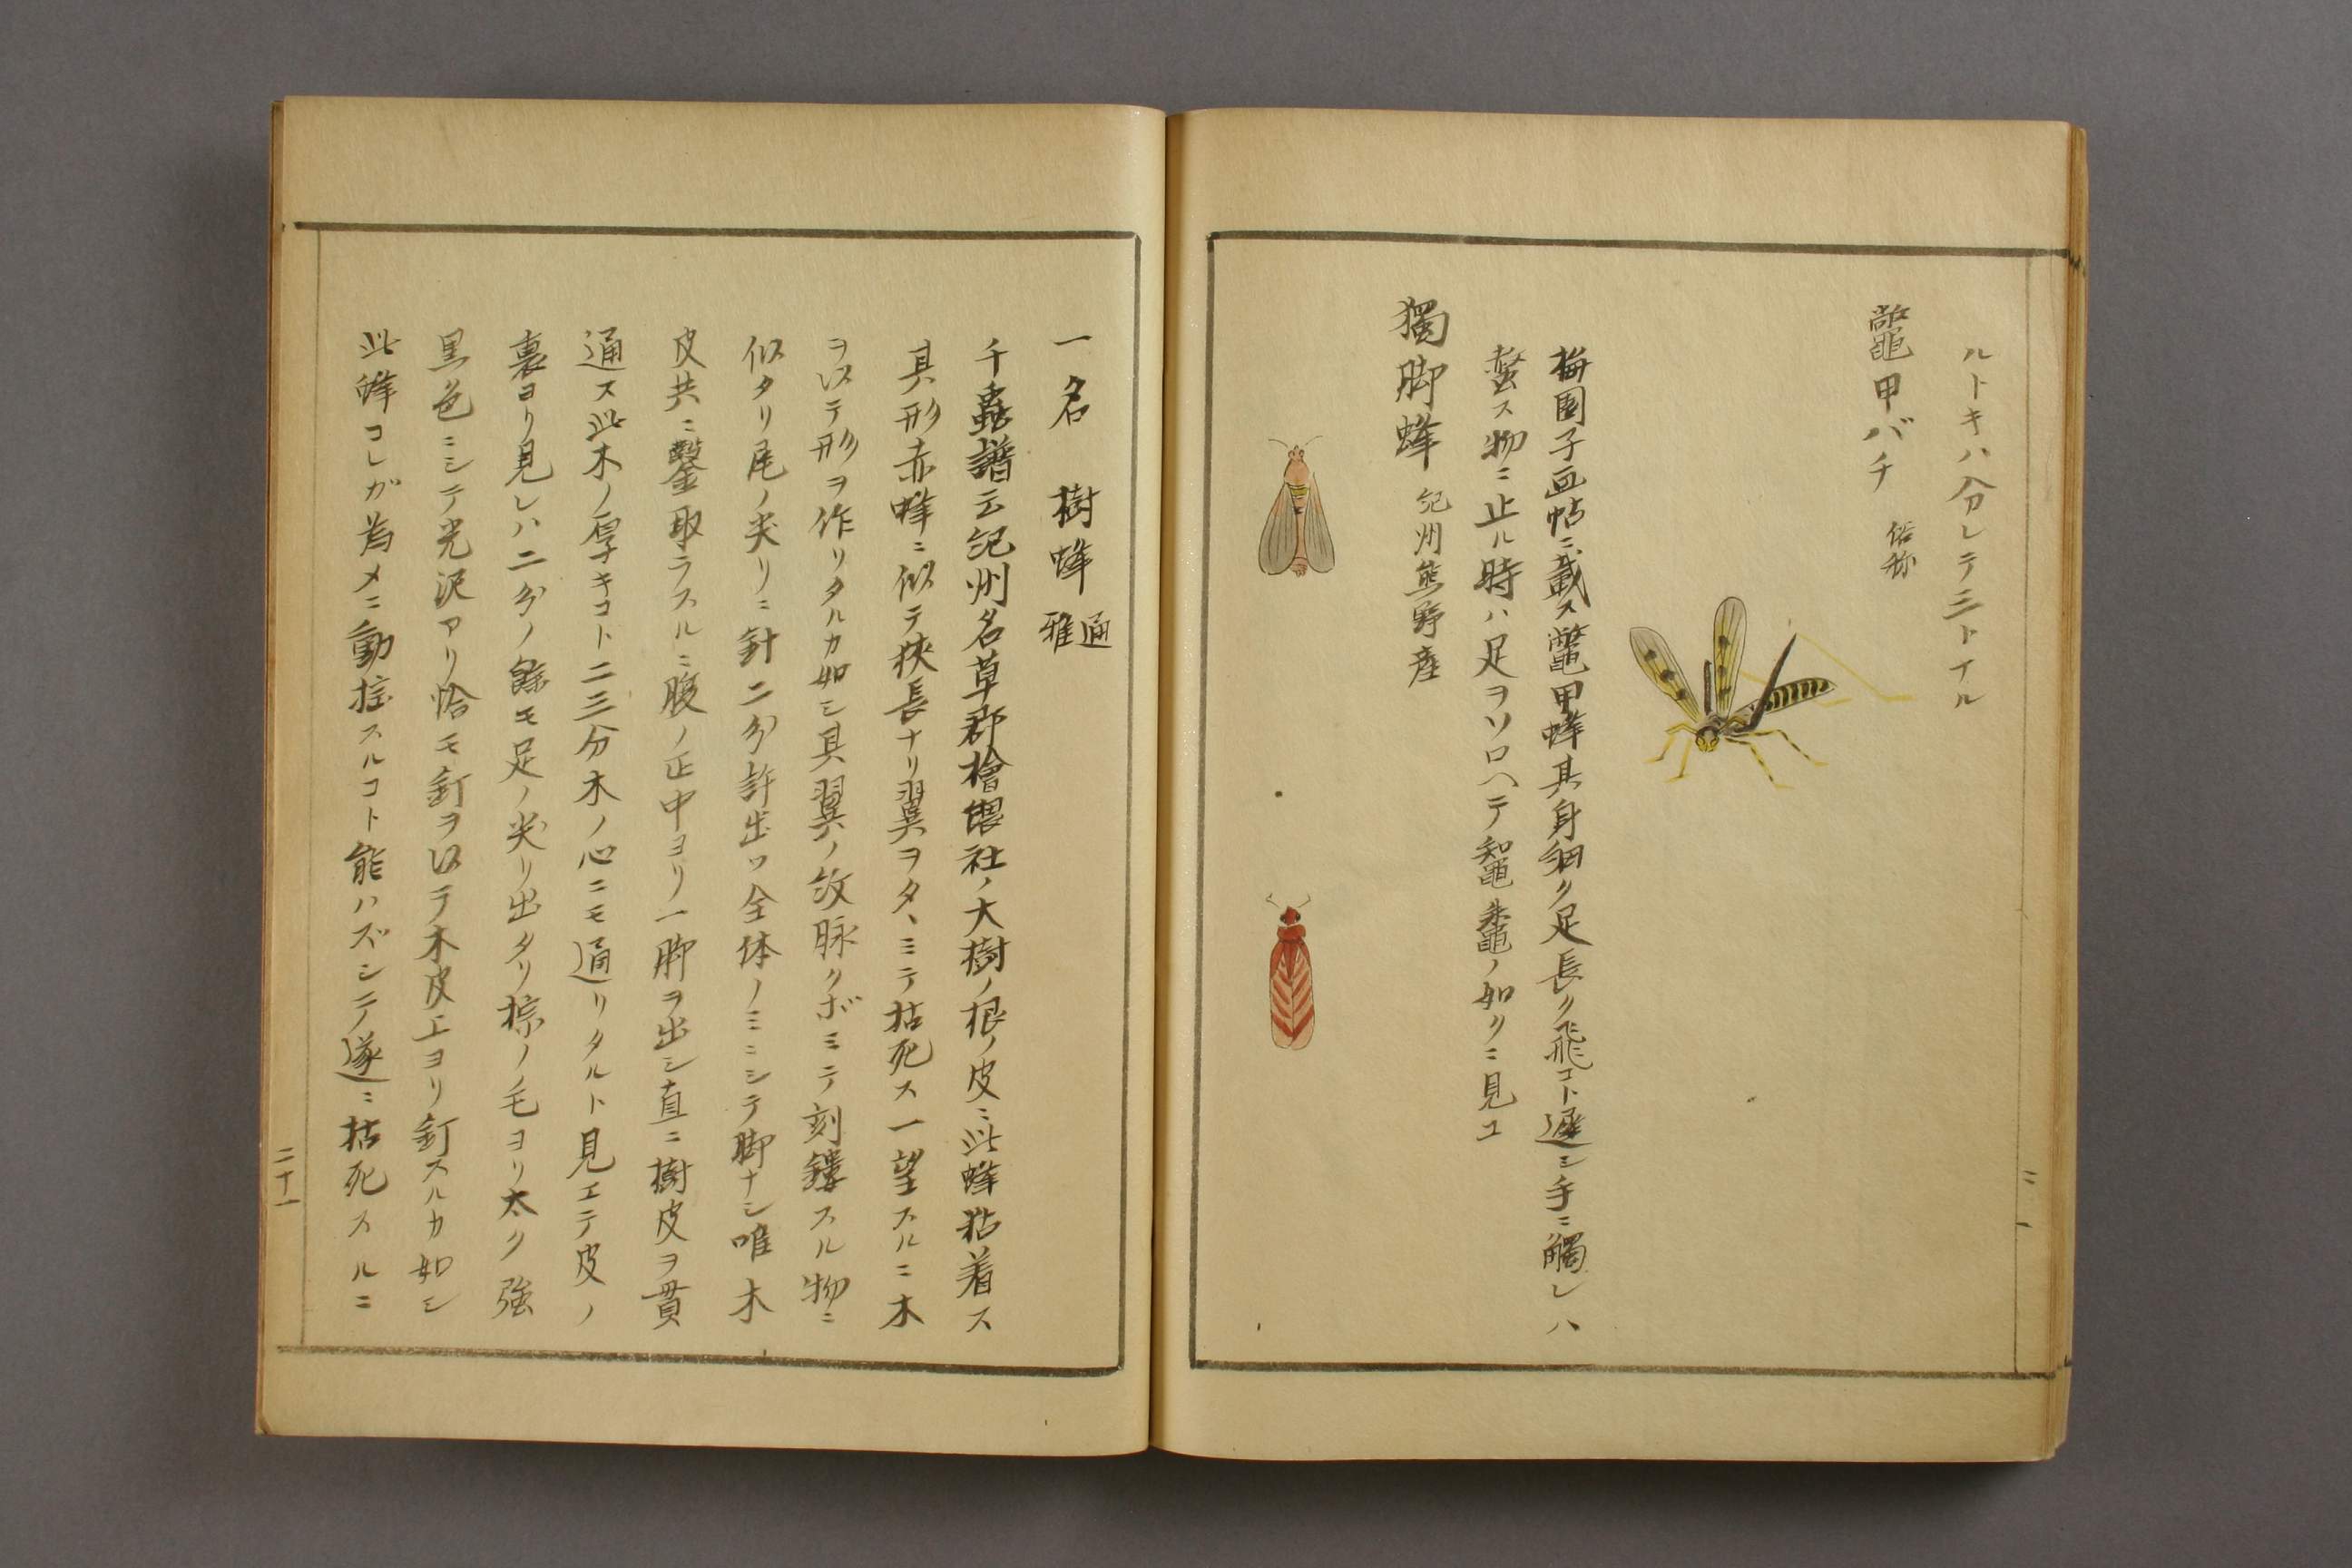 ルトキハ分レテ三トナル
鼈甲バチ 俗称
梅園子画帖ニ載ス鼈甲蜂其身細ク足長ク飛コト遅シ手ニ觸レハ
螫ス物ニ止ル時ハ足ヲソロヘテ鼅鼄ノ如クニ見ユ
獨脚蜂 紀州熊野産
二
一
一名 樹蜂 通雅
千蟲譜云紀州名草郡檜隈社ノ大樹ノ根ノ皮ニ此蜂粘着ス
其形赤蜂ニ似テ狭長ナリ翼ヲタヽミテ枯死ス一望スルニ木
ヲ以テ形ヲ作リタルカ如シ其翼ノ紋脉クボミテ刻鏤スル物ニ
似タリ尾ノ尖リニ針二分許出ツ全体ノミニシテ脚ナシ唯木
皮共ニ鑿取ラスルニ腹ノ正中ヨリ一脚ヲ出シ直ニ樹皮ヲ貫
通ス此木ノ厚キコト二三分木ノ心ニモ通リタルト見エテ皮ノ
裏ヨリ見レハ二分ノ餘モ足ノ尖リ出タリ棕ノ毛ヨリ太ク強
黒色ニシテ光沢アリ恰モ釘ヲ以テ木皮上ヨリ釘スルカ如シ
此蜂コレガ為メニ動揺スルコト能ハズシテ遂ニ枯死スルニ
二十一